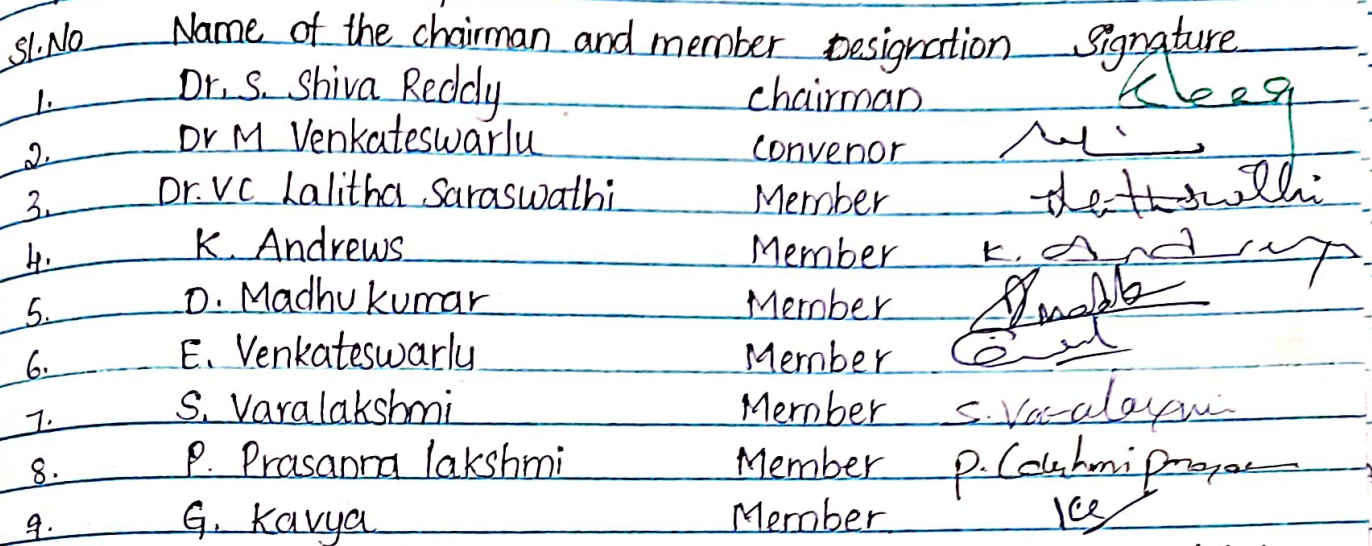 Sl.No Name of the chairman and member Designation Signature
1. Dr. S. Shiva Reddy chairman
2. Dr M Venkateswarlu convenor
3. Dr. VC Lalitha Saraswathi Member
4. K. Andrews Member K. Andrews
5. D. Madhu kumar Member
6. E. Venkateswarlu Member
7. S. Varalakshmi Member S. Varalaxmi
8. P. Prasanna lakshmi Member P. Lakshmi
9. G. Kavya Member